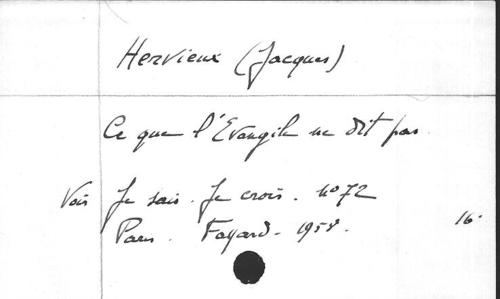 Hervieux (Jacques)
Ce que l'Evangile ne dit pas.
Voir Je sais. Je crois. no 72
Paris. Fayard. 1958. 16.